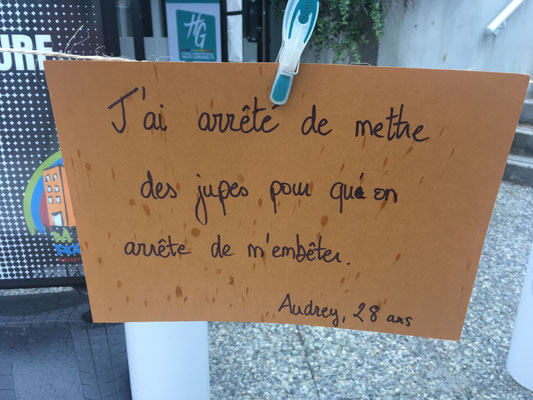 URE
HG
J'ai arrêté de mettre
des jupes pour qu'on
arrête de m'embêter.
Audrey, 28 ans